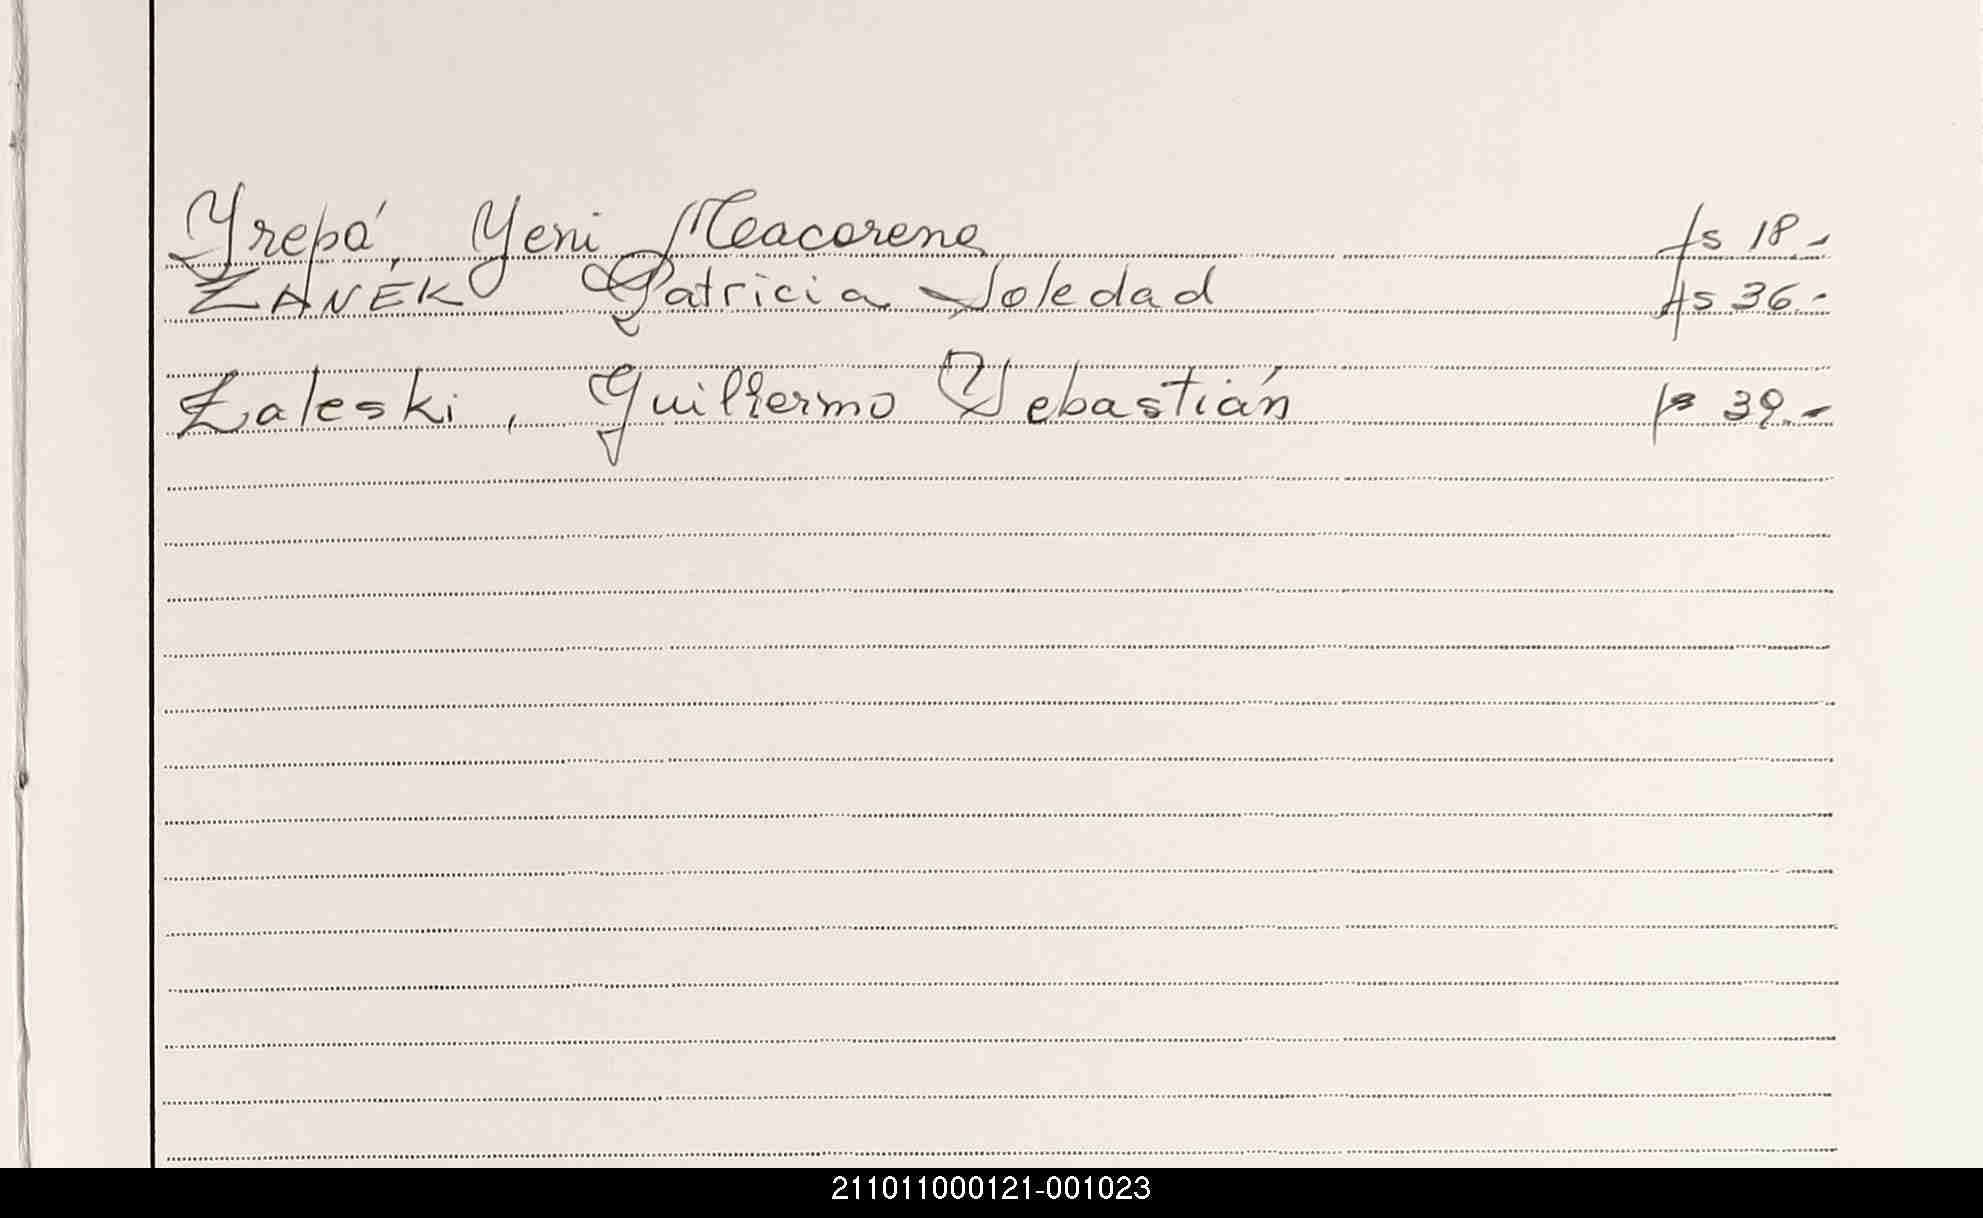 Yrepá, Yeni Macarena fs 18.-
ZANÉK Patricia Soledad fs 36.-
Zaleski, Guillermo Sebastián fs 39.-
211011000121-001023